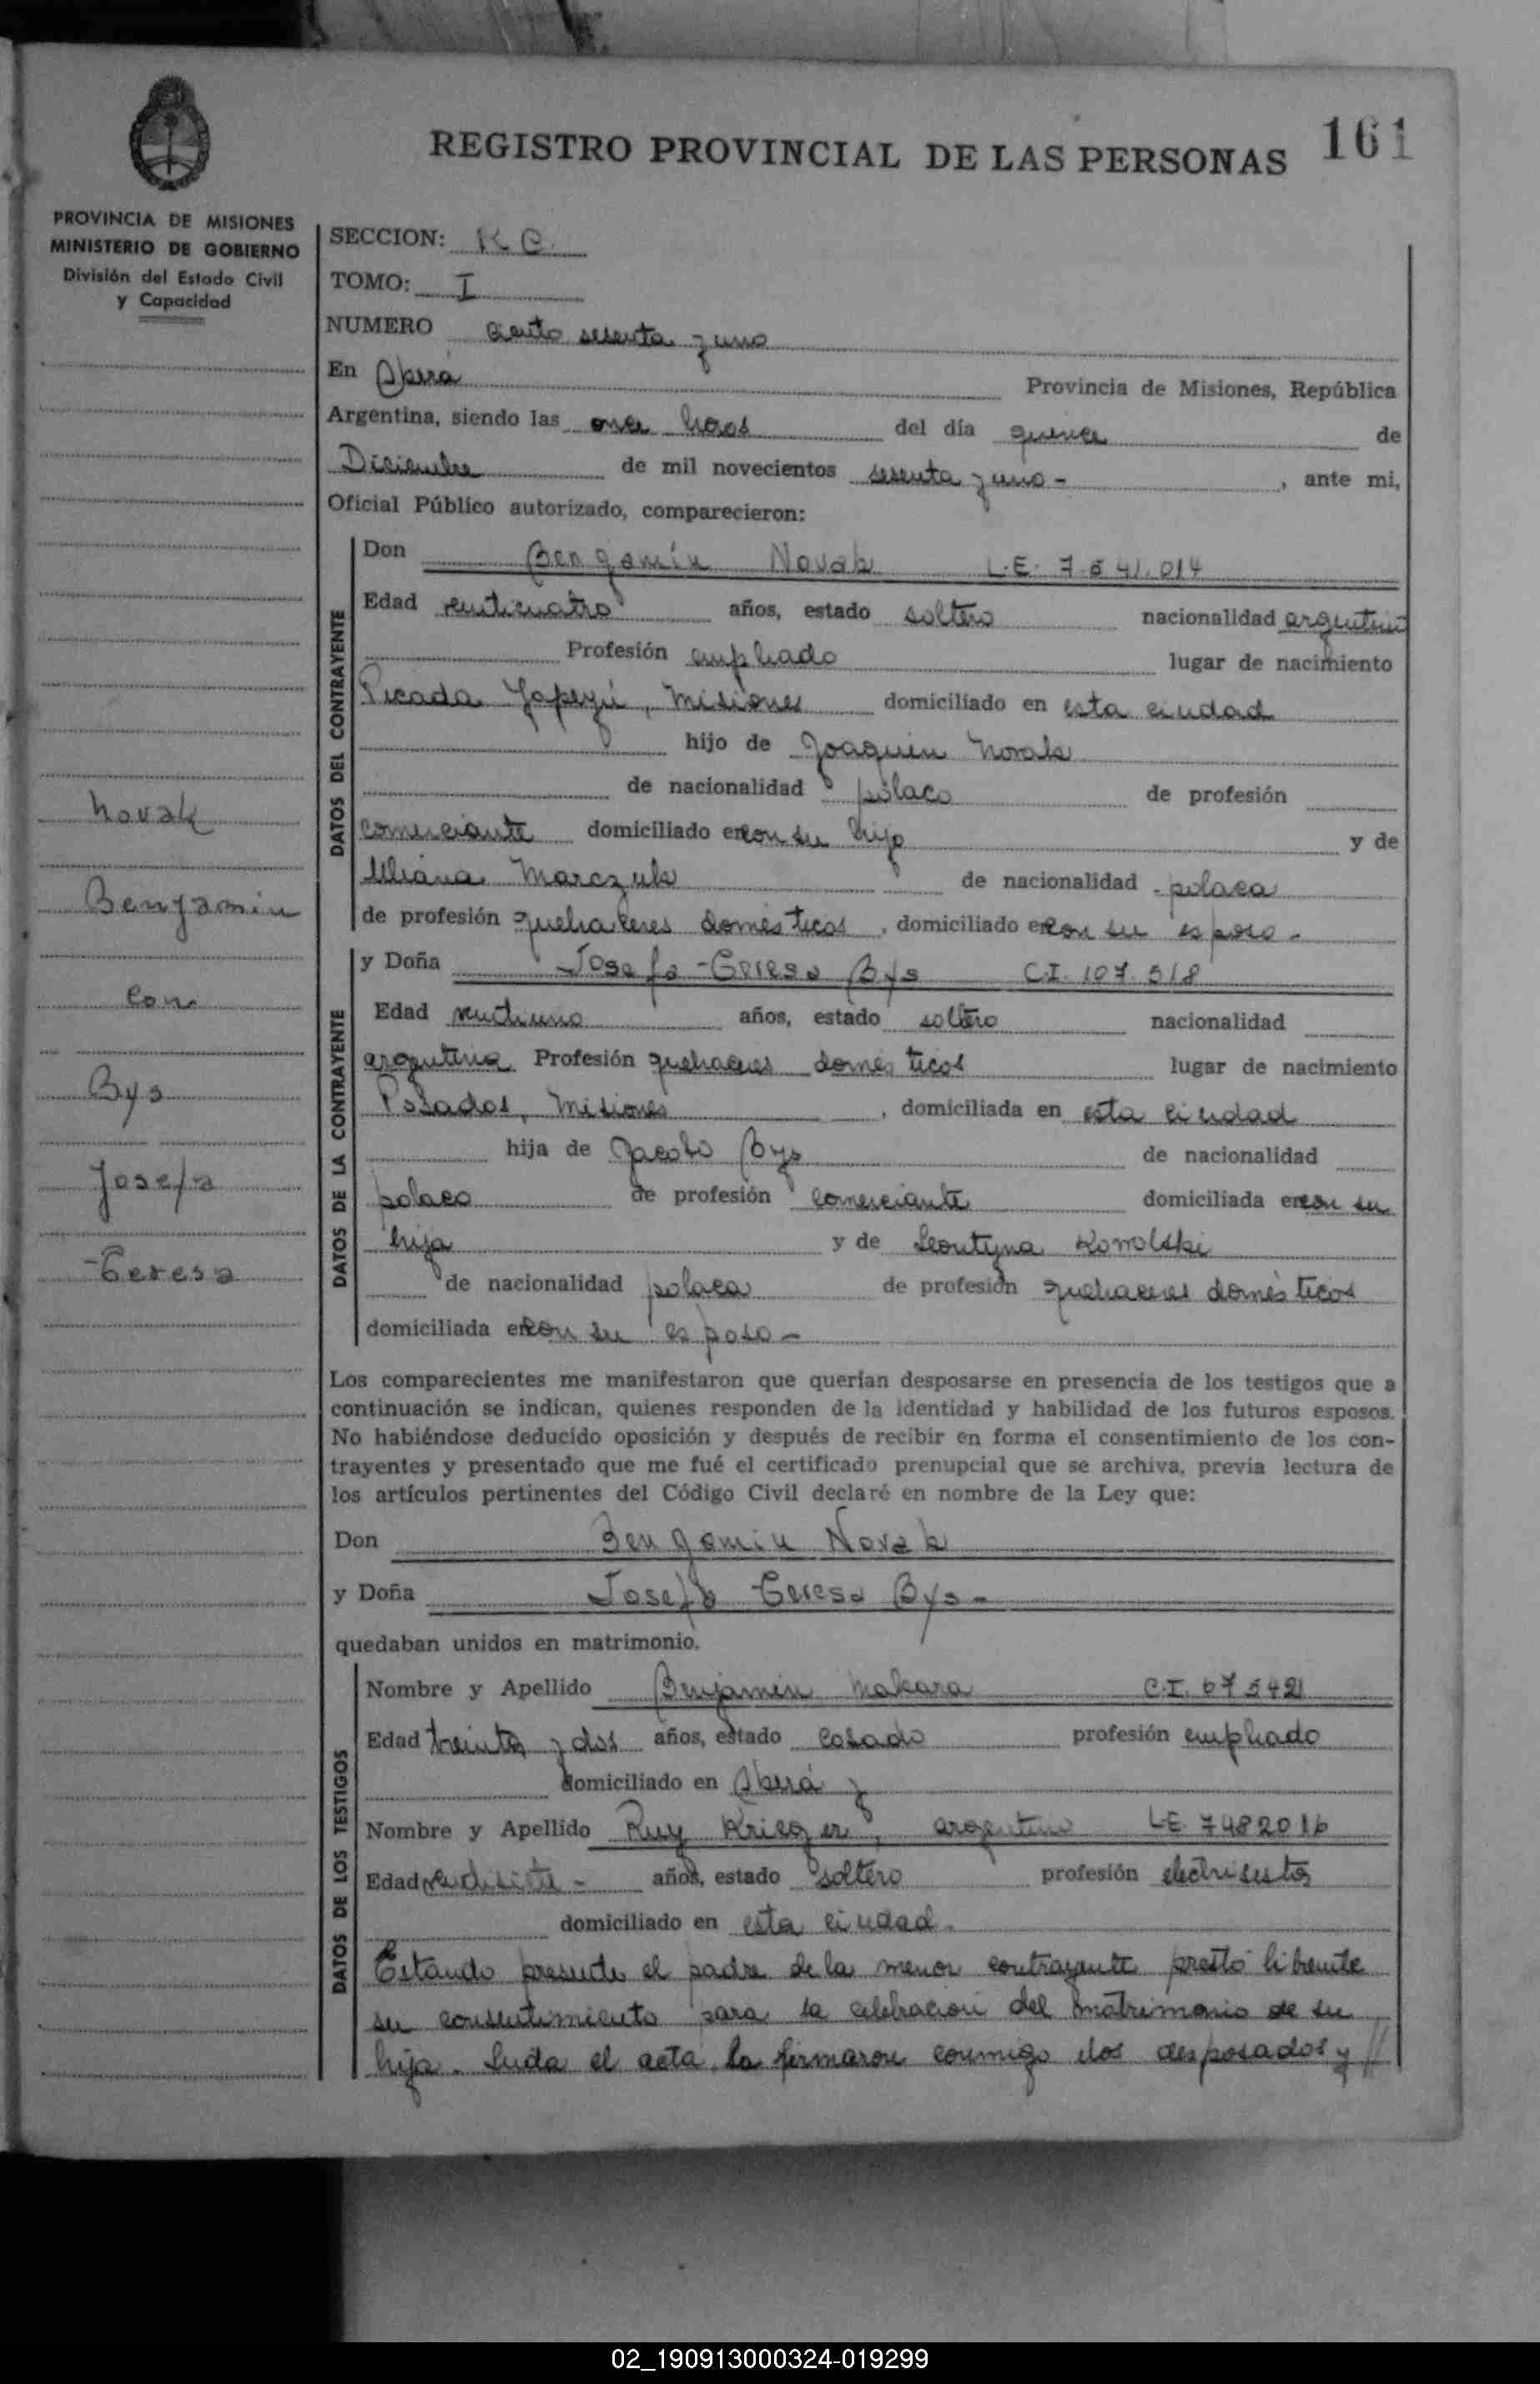 REGISTRO PROVINCIAL DE LAS PERSONAS 161
PROVINCIA DE MISIONES
MINISTERIO DE GOBIERNO
División del Estado Civil
y Capacidad
Novak
Benjamin
con
Bys
Josefa
Teresa
SECCION:
TOMO: I
NUMERO ciento sesenta y uno
En Oberá Provincia de Misiones, República
Argentina, siendo las once horas del día quince de
Diciembre de mil novecientos sesenta y uno - , ante mi,
Oficial Público autorizado, comparecieron:
DATOS DEL CONTRAYENTE
Don Benjamín Novak L.E. 7.541.014
Edad venticuatro años, estado soltero nacionalidad argentino
Profesión empleado lugar de nacimiento
Picada Yapeyú, Misiones domiciliado en esta ciudad
hijo de Joaquin Novak
de nacionalidad polaco de profesión
comerciante domiciliado en con su hijo y de
Marczuk de nacionalidad polaca
de profesión quehaceres domésticos , domiciliado en con su esposo -
DATOS DE LA CONTRAYENTE
y Doña Josefa Teresa Bys C.I. 107.518
Edad ventiuno años, estado soltero nacionalidad
argentina Profesión quehaceres domésticos lugar de nacimiento
Posadas, Misiones , domiciliada en esta ciudad
hija de Jacobo Bys de nacionalidad
polaco de profesión comerciante domiciliada en con su
hija y de Leontyna Kowolski
de nacionalidad polaca de profesión quehaceres domésticos
domiciliada en con su esposo -
Los comparecientes me manifestaron que querían desposarse en presencia de los testigos que a
continuación se indican, quienes responden de la identidad y habilidad de los futuros esposos.
No habiéndose deducido oposición y después de recibir en forma el consentimiento de los con-
trayentes y presentado que me fué el certificado prenupcial que se archiva, previa lectura de
los artículos pertinentes del Código Civil declaré en nombre de la Ley que:
Don Benjamin Novak
y Doña Josefa Teresa Bys -
quedaban unidos en matrimonio.
DATOS DE LOS TESTIGOS
Nombre y Apellido Benjamin Makara C.I. 67542
Edad treinta y dos años, estado casado profesión empleado
domiciliado en Oberá y
Nombre y Apellido Ruy Krieger, argentino L.E. 7482016
Edad años, estado soltero profesión electrisista
domiciliado en esta ciudad.
Estando presente el padre de la menor contrayente prestó libremte
su consentimiento para la celebracion del matrimonio de su
hija. Leida el acta, la firmaron conmigo los desposados y //
02_190913000324-019299